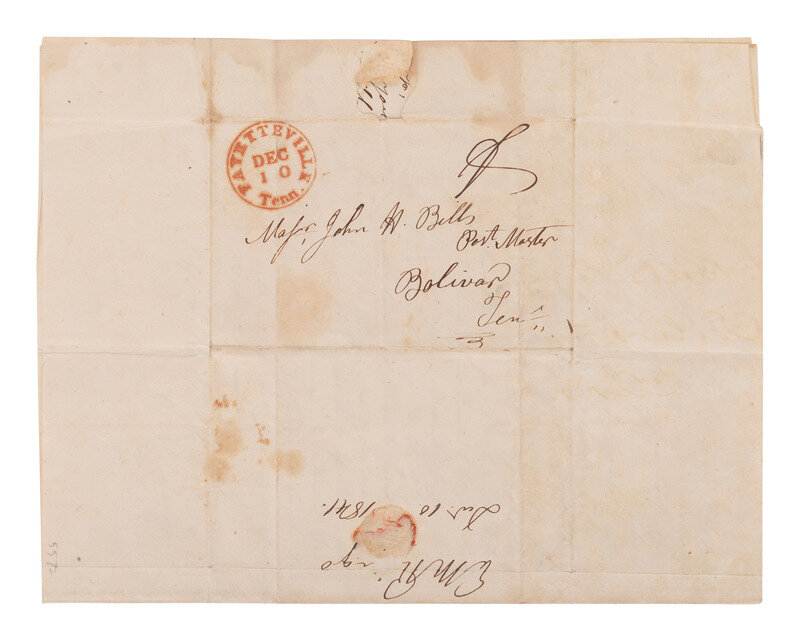 FAYETTEVILLE
DEC
10
Tenn.
Majr. John H. Bills
Post Master
Bolivar
Ten
E M Ringo
Dec. 10 1841.